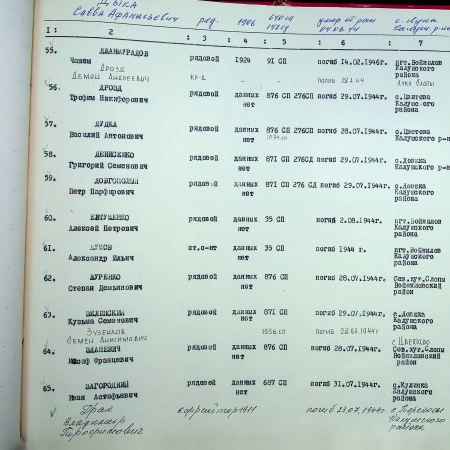 ЦЫКА
САВВА АФАНАСЬЕВИЧ ряд. 1906 640 СП умер от ран с. Лука
I : 2 : 3 : 4 : 5 : 6 : 7
55. ДЖАНМУРАДОВ
Чашем рядовой 1924 91 СП погиб 14.02.1946г. пгт.Войнилов
Калушского
района
ДРОЗД
ДЕМЬЯН АНДРЕЕВИЧ
56. ДРОЗД
Трофим Никифорович рядовой данных нет 876 СП 276СП погиб 29.07.1944г. с.Цветова
Калушского
района
57. ДУДКА
Василий Антонович рядовой данных нет 876 СП 276СП погиб 28.07.1944г. с.Цветова
Калушского р-на
58. ДЕНИСЕНКО
Григорий Семенович рядовой данных нет 871 СП 276СП погиб 29.07.1944г. с.Довжка
Калушского р-на
59. ДОВГОПОЛЫЙ
Петр Парфирович рядовой данных нет 871 СП 276 СД погиб 29.07.1944г. с.Довжка
Калушского
района
60. ЕВТУШЕНКО
Алексей Петрович рядовой данных нет 35 СП погиб 2.08.1944г. пгт.Войнилов
Калушского
района
61. ЖУКОВ
Александр Ильич ст.с-нт данных нет 35 СП погиб 1944 г. пгт.Войнилов
Калушского
района
62. ЖУРЕНКО
Степан Демьянович рядовой данных нет 876 СП погиб 28.07.1944г. Сев.хут.Слопы
Войниловский
район
63. ЗЕЛИНСКИЙ
Кузьма Семенович рядовой данных нет 871 СП погиб 29.07.1944г. с.Довжка
Калушского
района
ЗУБЕНКОВ
СЕМЕН АНИСИМОВИЧ 1036 СП погиб 28.07.1944г
64. ЗДАНЕВИЧ
Иосиф Францевич рядовой данных нет 876 СП погиб 28.07.1944г. Сев.хут.Слопы
Войниловский
район
65. ЗАГОРОДНИЙ
Иван Астафьевич рядовой данных нет 687 СП погиб 31.07.1944г. с.Кулинка
Калушского
района
Драч
Владимир
Трофимович ефрейтор 1911 погиб 23.07.1944г
Калушского
района